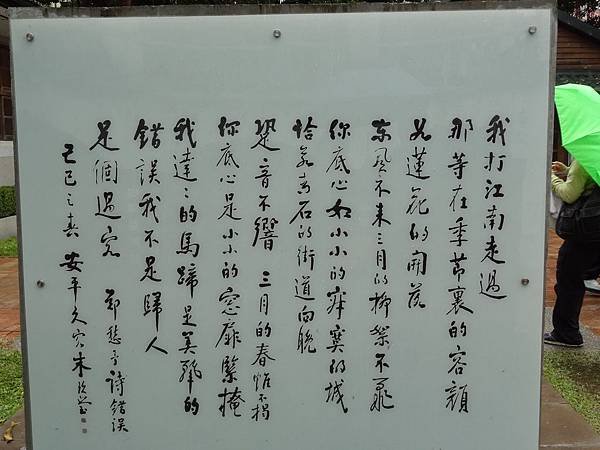 我打江南走過
那等在季節裏的容顏
如蓮花的開落
東風不來三月的柳絮不飛
你底心如小小的寂寞的城
恰若青石的街道向晚
跫音不響 三月的春帷不揭
你底心是小小的窓扉緊掩
我達達的馬蹄是美麗的
錯誤我不是歸人
是個過客 鄭愁予詩錯誤
己巳之春 安平久客朱